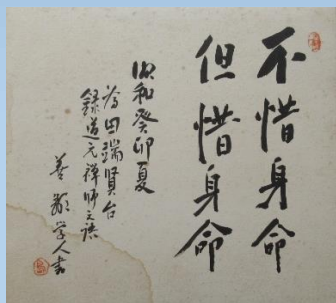 不惜身命
但惜身命
昭和癸卯夏
為田瑞賢台
錄道元禅師之語
学人書